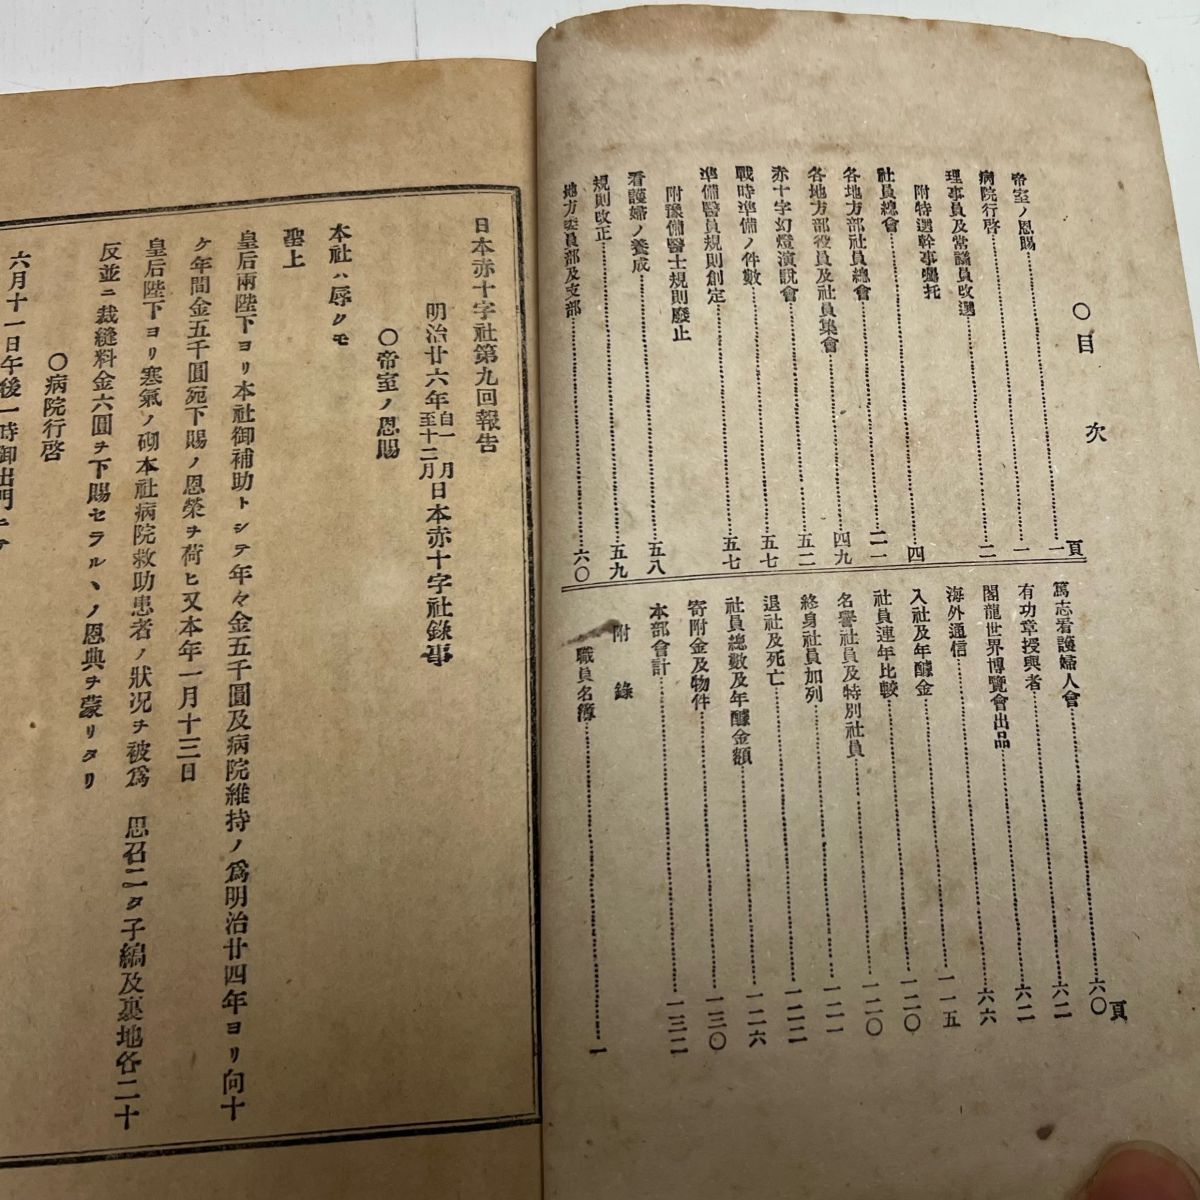 〇目次
頁
帝室ノ恩賜…一
病院行啓…一
理事員及常議員改選…二
附特選幹事囑托…四
社員總會…二一
各地方部社員總會…四九
各地方部役員及社員集會…五二
赤十字幻燈演說會…五七
戰時準備ノ件數…五七
準備醫員規則創定
附豫備醫士規則廢止
看護婦ノ養成…五八
規則改正…五九
地方委員部及支部…六〇
頁
篤志看護婦人會…六〇
有功章授與者…六二
閣龍世界博覽會出品…六二
海外通信…六六
入社及年醵金…一一五
社員連年比較…一二〇
名譽社員及特別社員…一二〇
終身社員加列…一二一
退社及死亡…一二二
社員總數及年醵金額…一二六
寄附金及物件…一三〇
本部會計…一三二
附錄
職員名簿…一
日本赤十字社第九回報告
明治廿六年自一月至十二月日本赤十字社錄事
〇帝室ノ恩賜
本社ハ辱クモ
聖上
皇后兩陛下ヨリ本社御補助トシテ年々金五千圓及病院維持ノ爲明治廿四年ヨリ向十
ケ年間金五千圓宛下賜ノ恩榮ヲ荷ヒ又本年一月十三日
皇后陛下ヨリ寒氣ノ砌本社病院救助患者ノ狀况ヲ被爲 思召ニタ子縞及裏地各二十
反並ニ裁縫料金六圓ヲ下賜セラルヽノ恩典ヲ蒙リタリ
〇病院行啓
六月十一日午後一時御出門ニテ